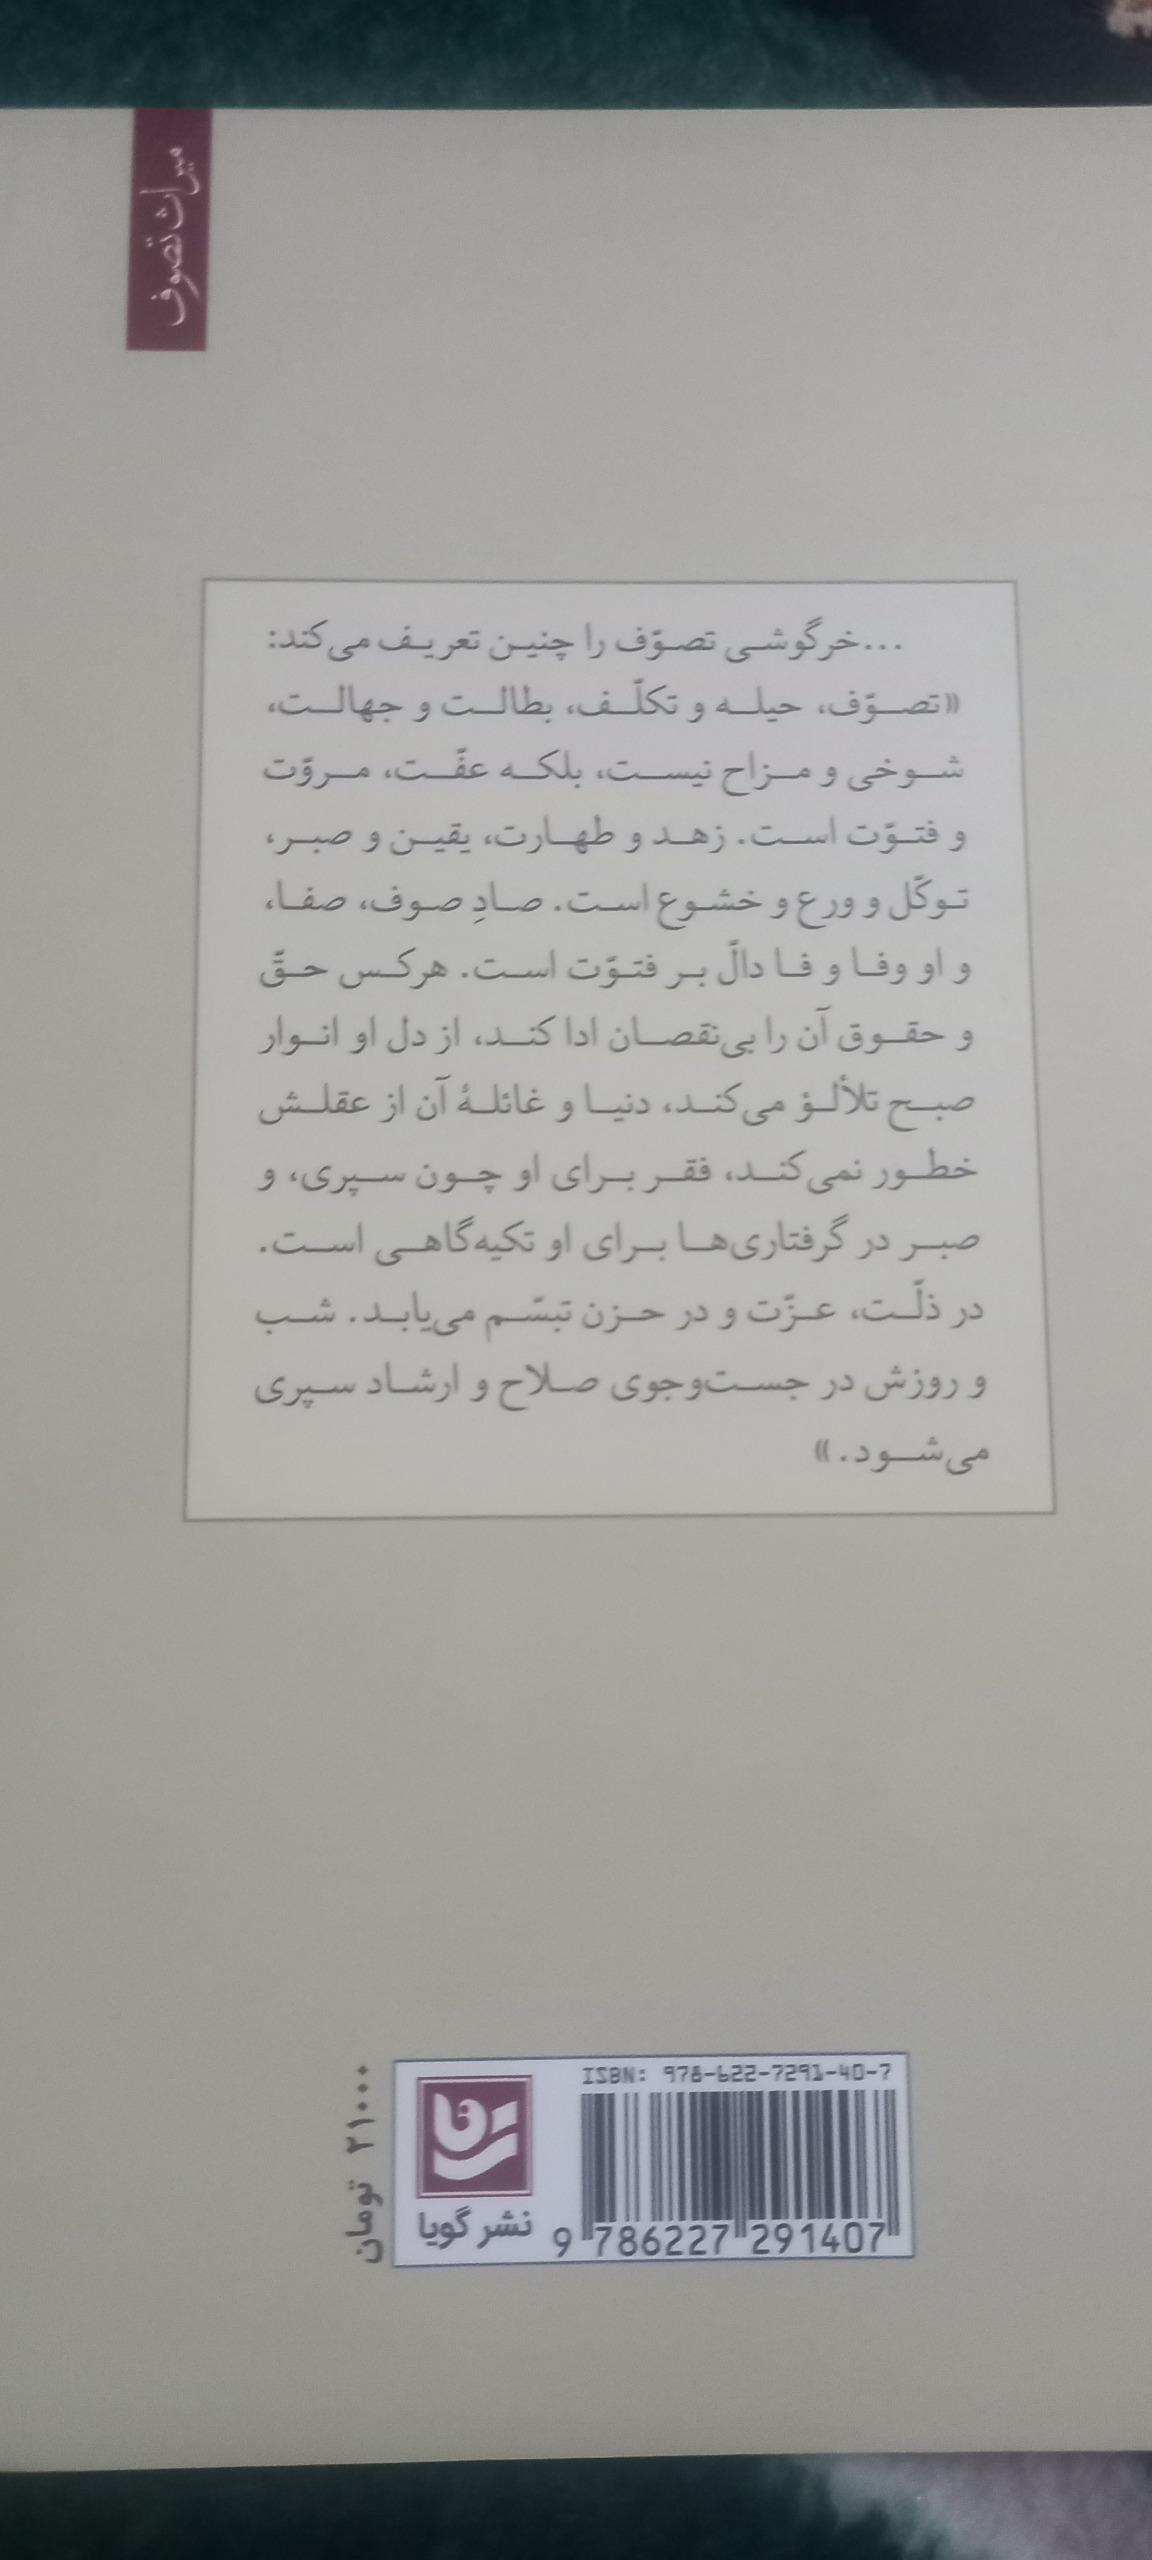 میراث تصوف
...خرگوشی تصوّف را چنین تعریف می‌کند:
«تصوّف، حیله و تکلّف، بطالت و جهالت،
شوخی و مزاح نیست، بلکه عفّت، مروّت
و فتوّت است. زهد و طهارت، یقین و صبر،
توکّل و ورع و خشوع است. صادِ صوف، صفا،
و او وفا و فا دالّ بر فتوّت است. هرکس حقّ
و حقوق آن را بی‌نقصان ادا کند، از دل او انوار
صبح تلألؤ می‌کند، دنیا و غائلهٔ آن از عقلش
خطور نمی‌کند، فقر برای او چون سپری، و
صبر در گرفتاری‌ها برای او تکیه‌گاهی است.
در ذلّت، عزّت و در حزن تبسّم می‌یابد. شب
و روزش در جست‌وجوی صلاح و ارشاد سپری
می‌شود.»
ISBN: 978-622-7291-40-7
9 786227 291407
نشر گویا
۲۱۰۰۰ تومان